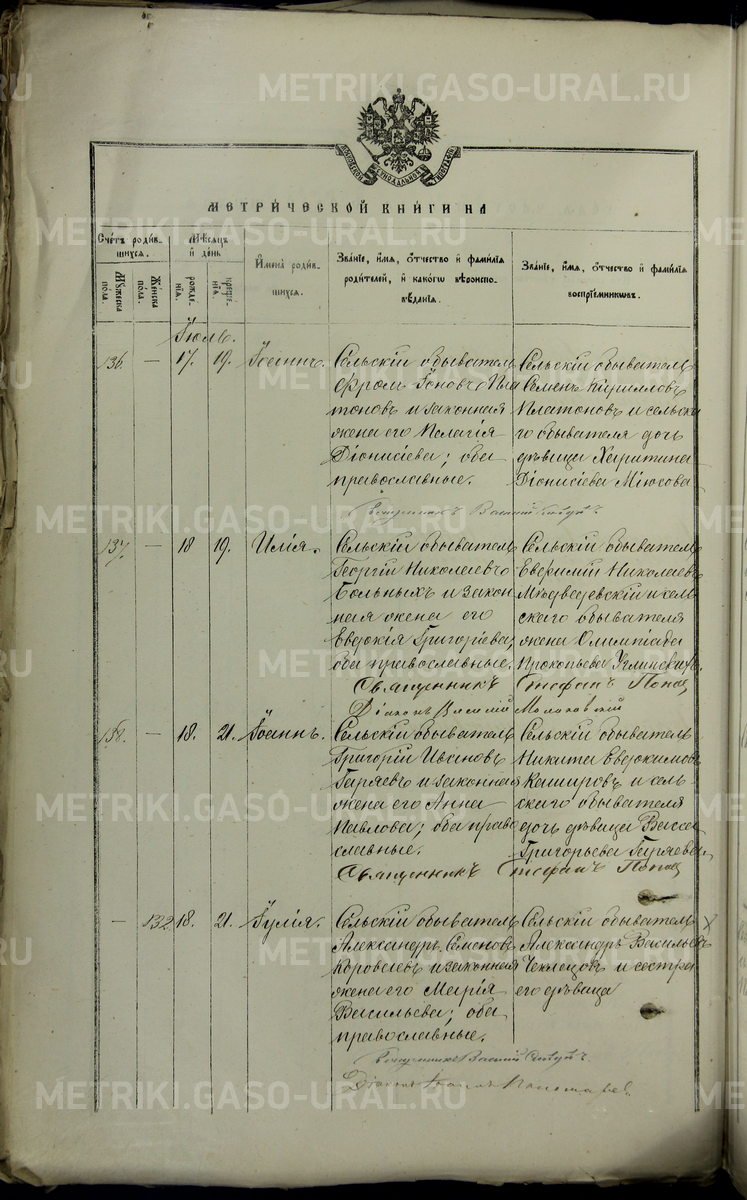 METRIKI.GASO-URAL.RU
МЕТРИЧЕСКОЙ КНИГИ НА
Счетъ родившихся.
Мѣсяцъ и день
Имена родившихся.
Званіе, имя, отчество и фамилія родителей, и какого вѣроисповѣданія.
Званіе, имя, отчество и фамилія воспріемниковъ.
Мужеска пола.
Женска пола.
рожденія.
крещенія.
Іюль.
136. — 17. 19. Іоаннъ.
Сельскій обыватель
Іоновъ Пла
тоновъ и законная
жена его Пелагія
Діонисіева; оба
православные.
Сельскій обыватель
Семенъ Кирилловъ
Платоновъ и сельска
го обывателя дочь
дѣвица Харитина
Діонисіева Мѣюсова
137. — 18 19. Илія.
Сельскій обыватель
Георгій Николаевъ
Больныхъ и закон
ная жена его
Евдокія Григоріева;
оба православные.
Сельскій обыватель
Евфимій Николаевъ
Медведевскій и сель
скаго обывателя
жена Олимпіада
Прокопьева
Священникъ Стефанъ Поповъ
Діаконъ Василій
138. — 18. 21. Іоаннъ.
Сельскій обыватель
Григорій Ивановъ
Гаряевъ и законная
жена его Анна
Павлова; оба право
славные.
Сельскій обыватель
Никита Евдокимовъ
Кашировъ и сель
скаго обывателя
дочь дѣвица Васса
Григорьева Гаряева
Священникъ Стефанъ Поповъ
— 132. 18. 21. Іулія.
Сельскій обыватель
Александръ Семеновъ
Короваевъ и законная
жена его Марія
Васильева; оба
православные.
Сельскій обыватель
Александръ Васильевъ
и сестра
его дѣвица
Діаконъ Іоаннъ Пономаревъ